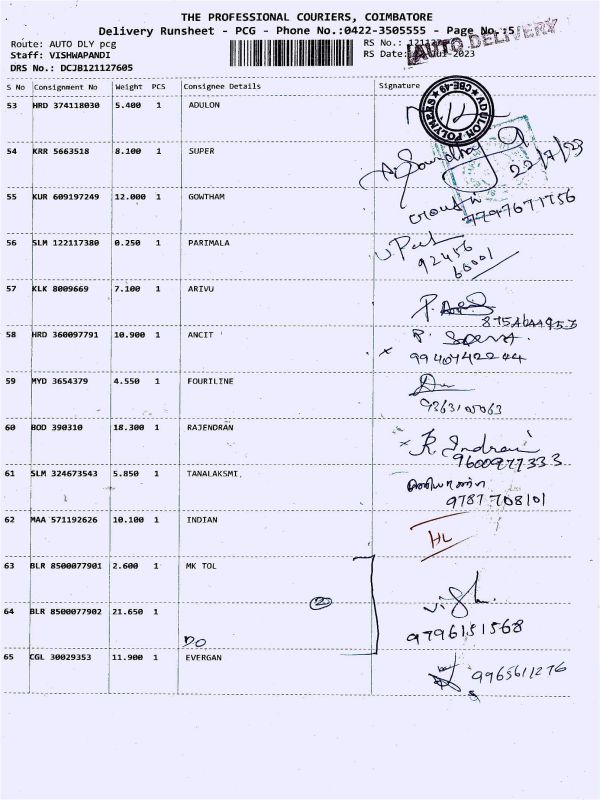 THE PROFESSIONAL COURIERS, COIMBATORE
Delivery Runsheet - PCG - Phone No.:0422-3505555 - Page No.:5
Route: AUTO DLY pcg
RS No.:
AUTO DELIVERY
Staff: VISHWAPANDI
RS Date:
DRS No.: DCJB121127605
S No Consignment No Weight PCS Consignee Details Signature
53 HRD 374118030 5.400 1 ADULON
ADULON POLYMERS CBE-49
54 KRR 5663518 8.100 1 SUPER
22/7/23
55 KUR 609197249 12.000 1 GOWTHAM
56 SLM 122117380 0.250 1 PARIMALA
92456
60001
57 KLK 8009669 7.100 1 ARIVU
58 HRD 360097791 10.900 1 ANCIT
59 MYD 3654379 4.550 1 FOURILINE
60 BOD 390310 18.300 1 RAJENDRAN
R Indrani
9600977333
61 SLM 324673543 5.850 1 TANALAKSMI
9787708101
62 MAA 571192626 10.100 1 INDIAN
HL
63 BLR 8500077901 2.600 1 MK TOL
2
64 BLR 8500077902 21.650 1
DO
9796151568
65 CGL 30029353 11.900 1 EVERGAN
9965611276